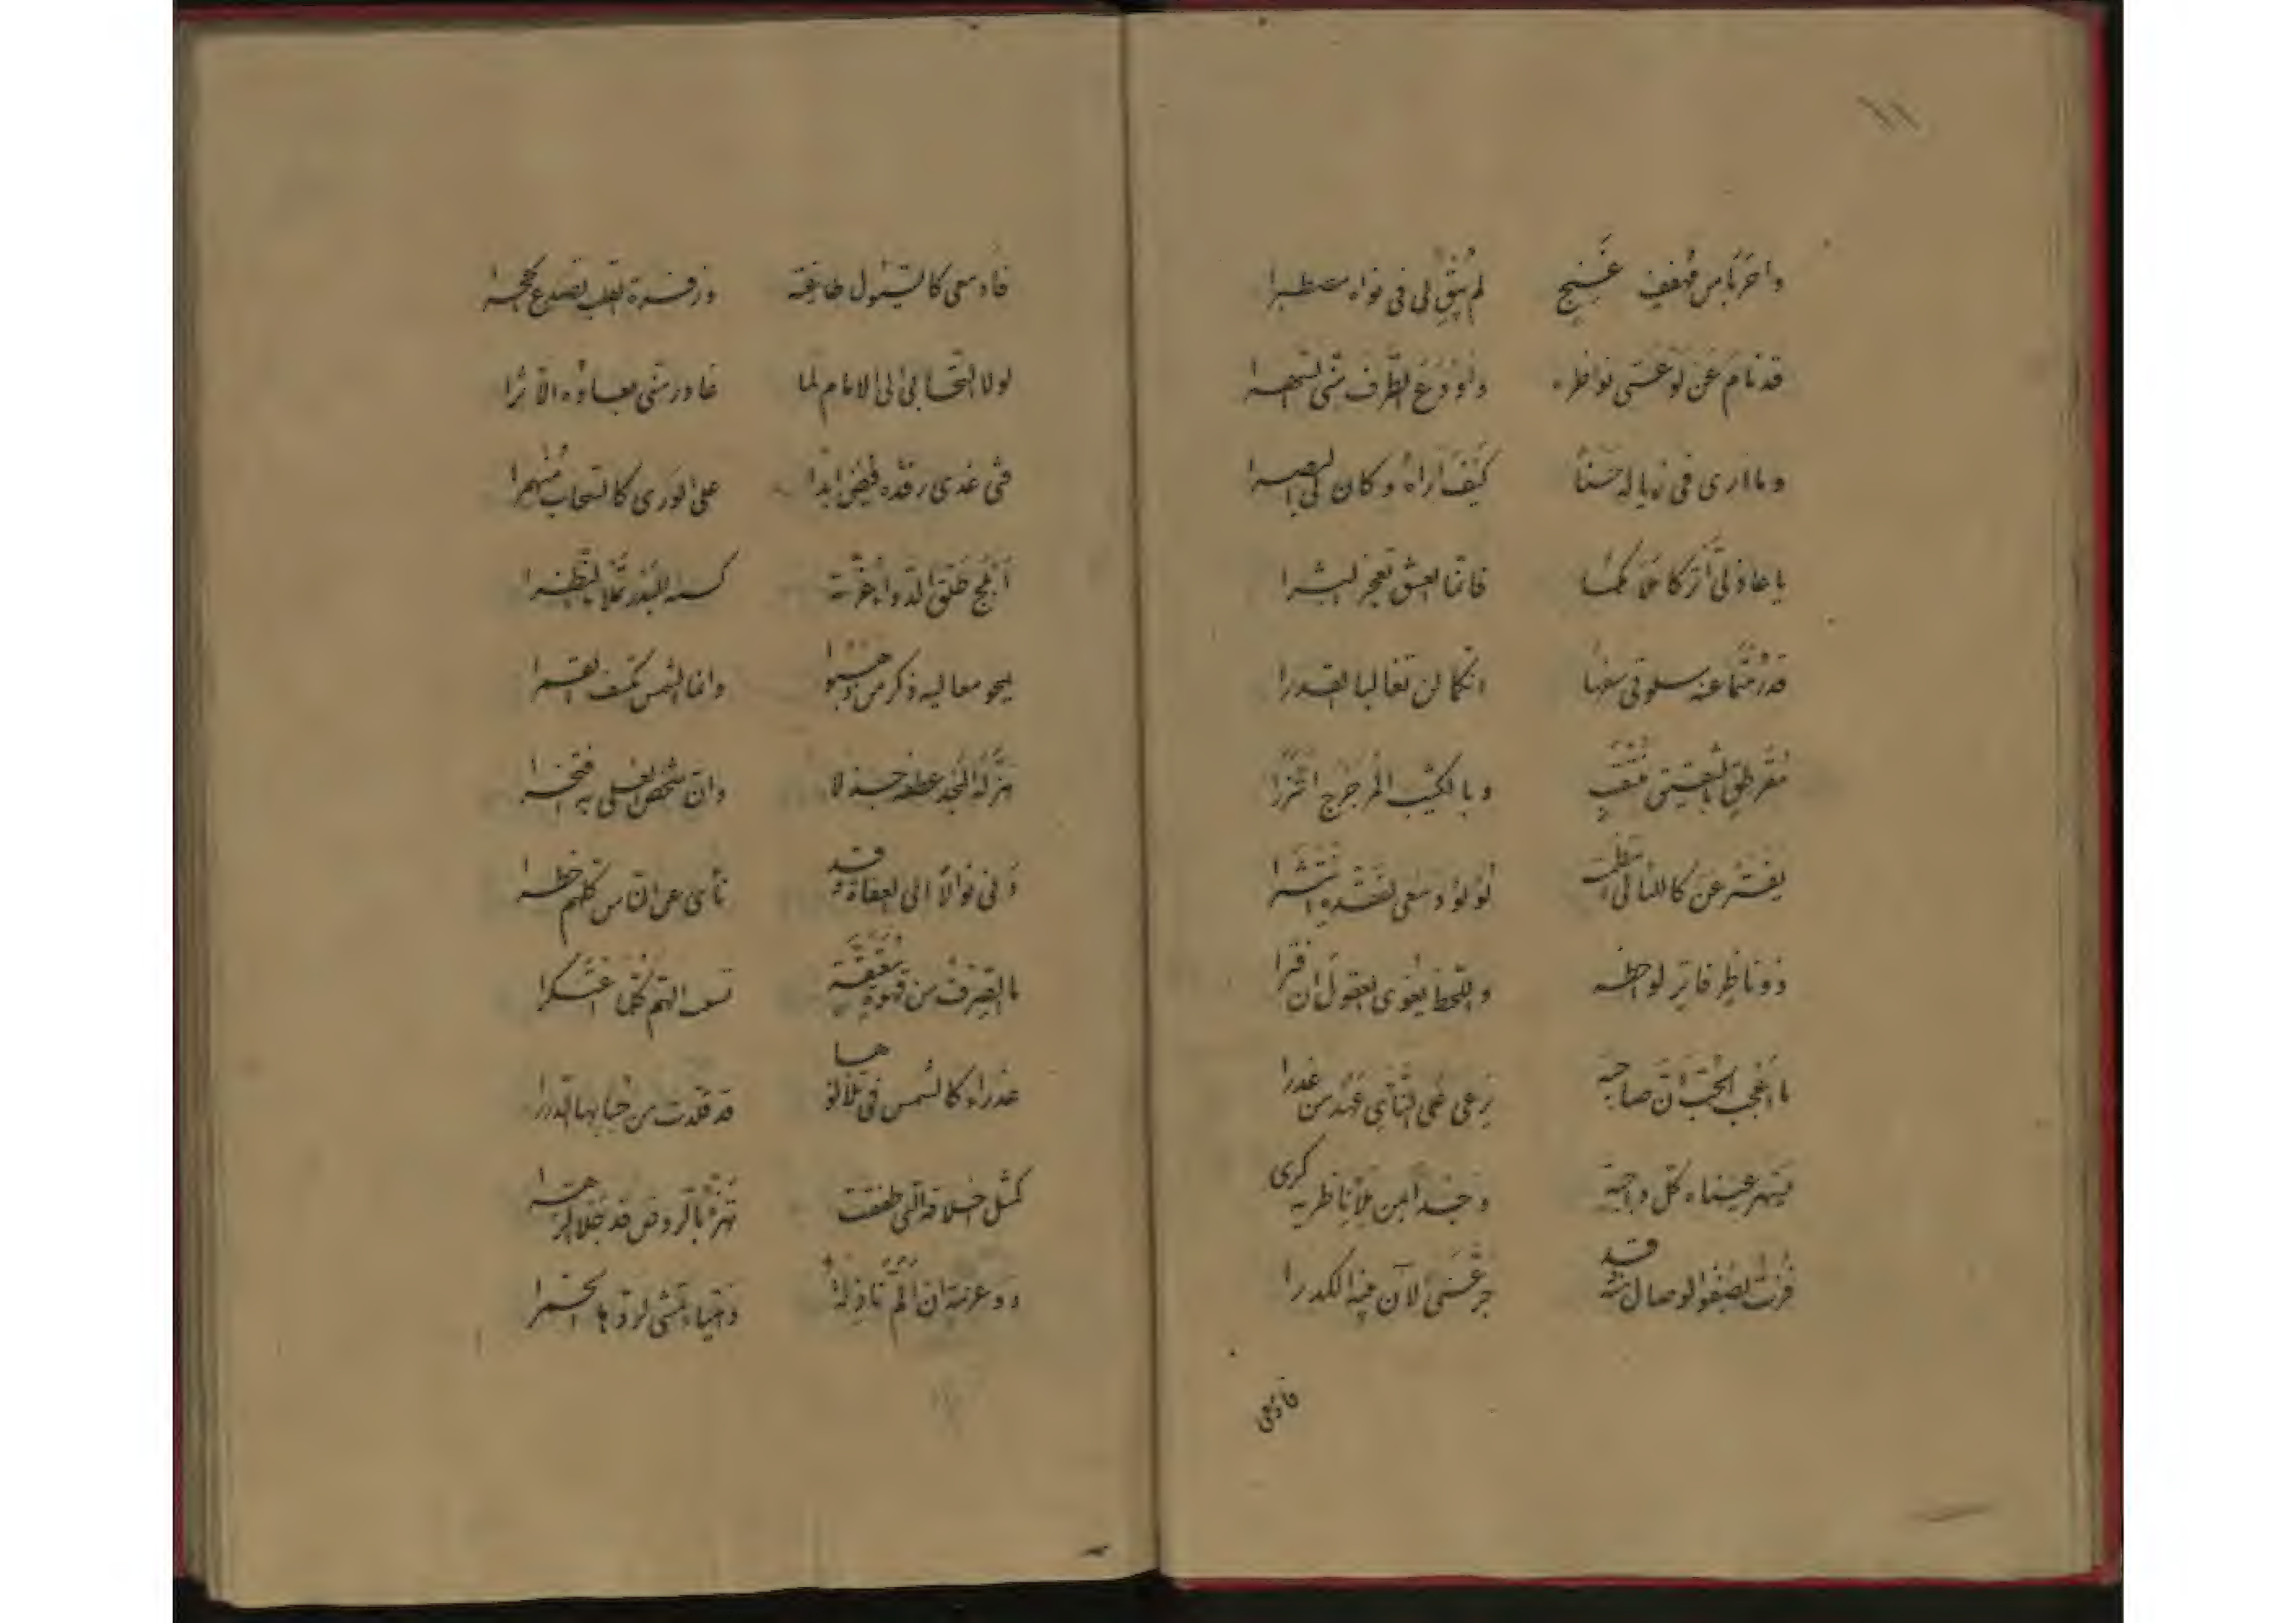 ١١
واحربا من مهفهف غَنِجٍ لم يُبْقِ لي في نواه مصطبرا
قد نام عن لوعتي نواظره وأودع الطرف مني السهرا
وما ارى في زياله حسناً كَيْفَ اَراهُ وكان لي البصرا
يا عاذليَّ اتركا ملامكما فانما العشق تعجز البشرا
قد رُمتما عنه سلوتي سفها انكما لن تغالبا القدرا
مُقَرطقٍ بالعقيق مُنْتَقِبٍ وبالكثيب المرجرج اتّزرا
يفتر عن كاللئالي انتظمت لؤلؤ دمعي لفقده انتثرا
ذو ناظر فاتر لواحظه واللحظ يغوي العقول ان فترا
ما اَعجب الحبّ اَنّ صاحبه يَرعى على النأي عَهْدَ من غدرا
يسهر عيناه كل داجية وجداً بمن ملأ ناظريه كرى
فُزتُ بصَفْوِ الوصال منه وقد جرّعني الآن بينه الكدرا
فادمعي
فادمعي كالسيول طافحة وزفرة القلب تصدع الحجرا
لولا التجائي الى الامام لما غادر مني بعاده الاثرا
فتى غدى رفده يفيض ابدا على الورى كالسحاب منهمرا
اَبلج طلق الندى اغرّته كسنا البدر تملأ النظرا
يمحو معاليه ذكر من ذهبوا وانما الشمس تكسف القمرا
هزّ له المجد عطفه جذلا وان شخص العلى به فخرا
دنى نوالاً الى العفاة وقد نأى عن الناس كلهم خطرا
ما الصِرفُ من قهوة مُعتّقة تسعد الهمّ كلما اعتكرا
عذراء كالشمس في تلألؤها قد قلدت من حبابها الدررا
كمثل اخلاقه التي طفقت تهزُء بالروض قد جلا الزهرا
ذو عزمة ان اَلمّ نازلةٌ